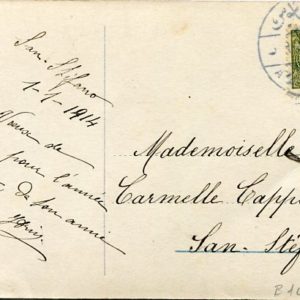 San-Stéfano
1-1-1914
Vœux de
pour l'année
de son amie
Mademoiselle
Carmelle Cappe
San-Stéf
B10